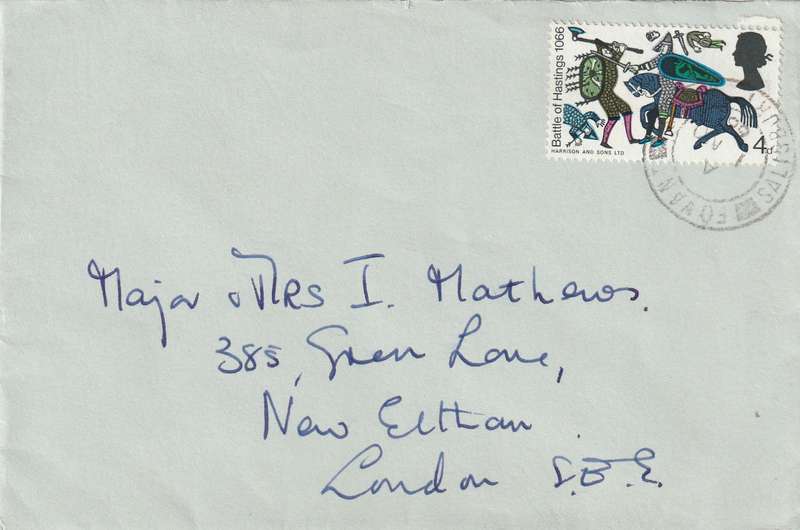 Battle of Hastings 1066
4d
HARRISON AND SONS LTD
Major & MRS I. Mathews.
385, Green Lane,
New Eltham
London S.E.9.